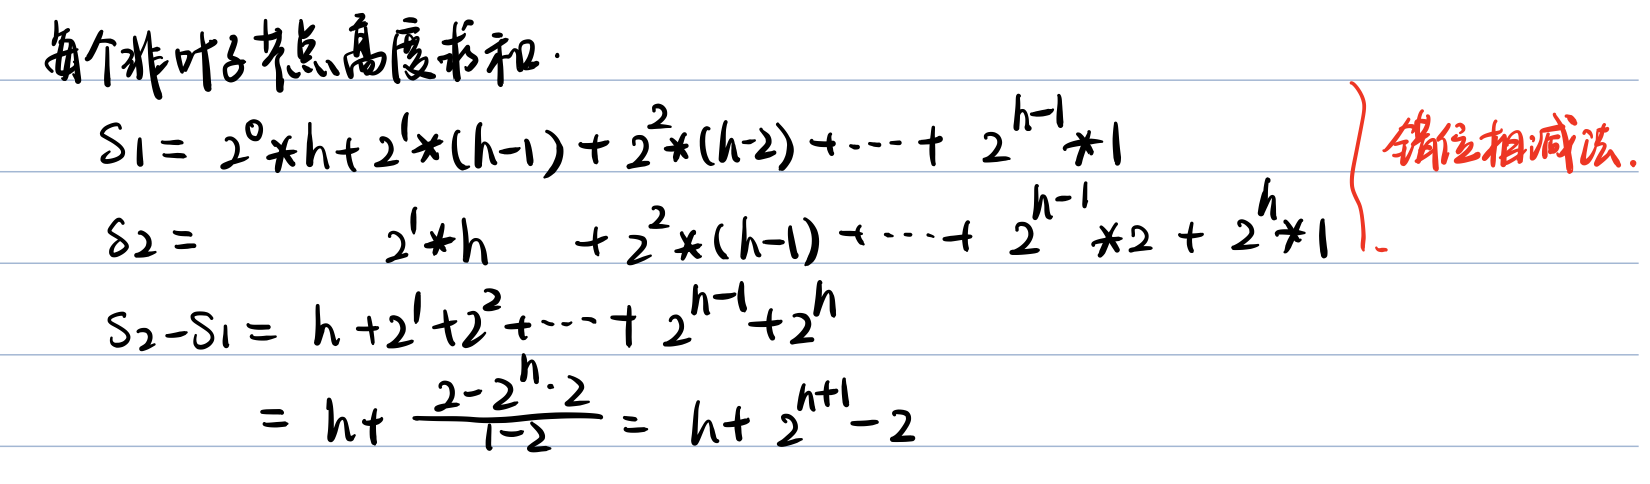 每个非叶子节点高度求和.
S1 = 2^0*h + 2^1*(h-1) + 2^2*(h-2) + ... + 2^{h-1}*1
错位相减法.
S2 = 2^1*h + 2^2*(h-1) + ... + 2^{h-1}*2 + 2^h*1
S2-S1 = h + 2^1 + 2^2 + ... + 2^{h-1} + 2^h
= h + \frac{2-2^h·2}{1-2} = h + 2^{h+1} - 2